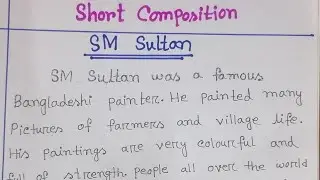 Short Composition
SM Sultan
SM Sultan was a famous
Bangladeshi painter. He painted many
Pictures of farmers and village life.
His paintings are very colourful and
full of strength. people all over the world